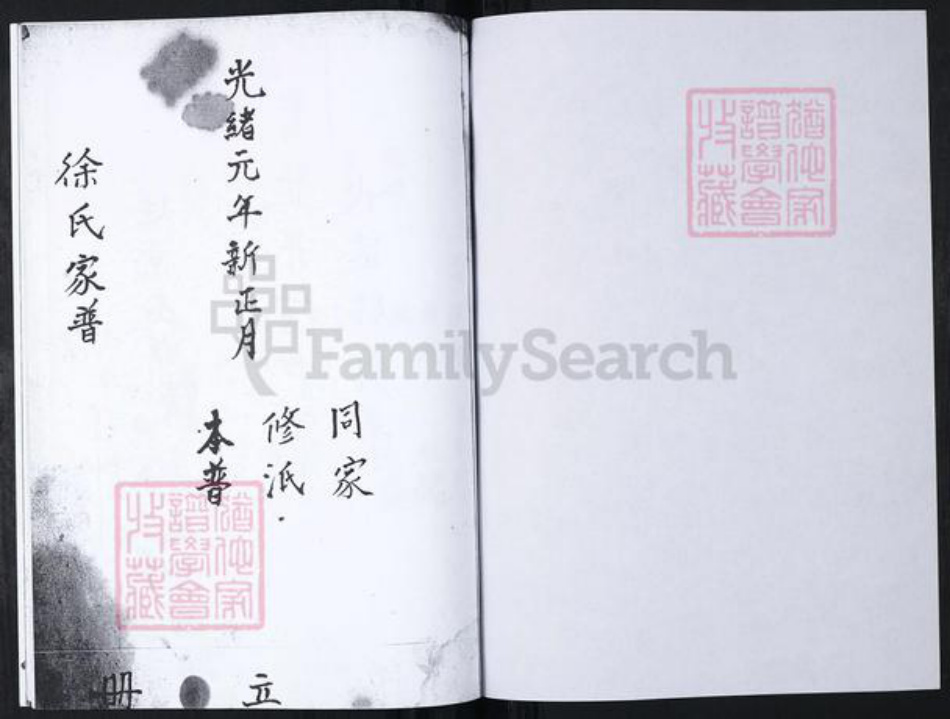 猶他家
譜學會
收藏
同家
修派
本普
光緒元年新正月
立
徐氏家普
冊
猶他家
譜學會
收藏
FamilySearch